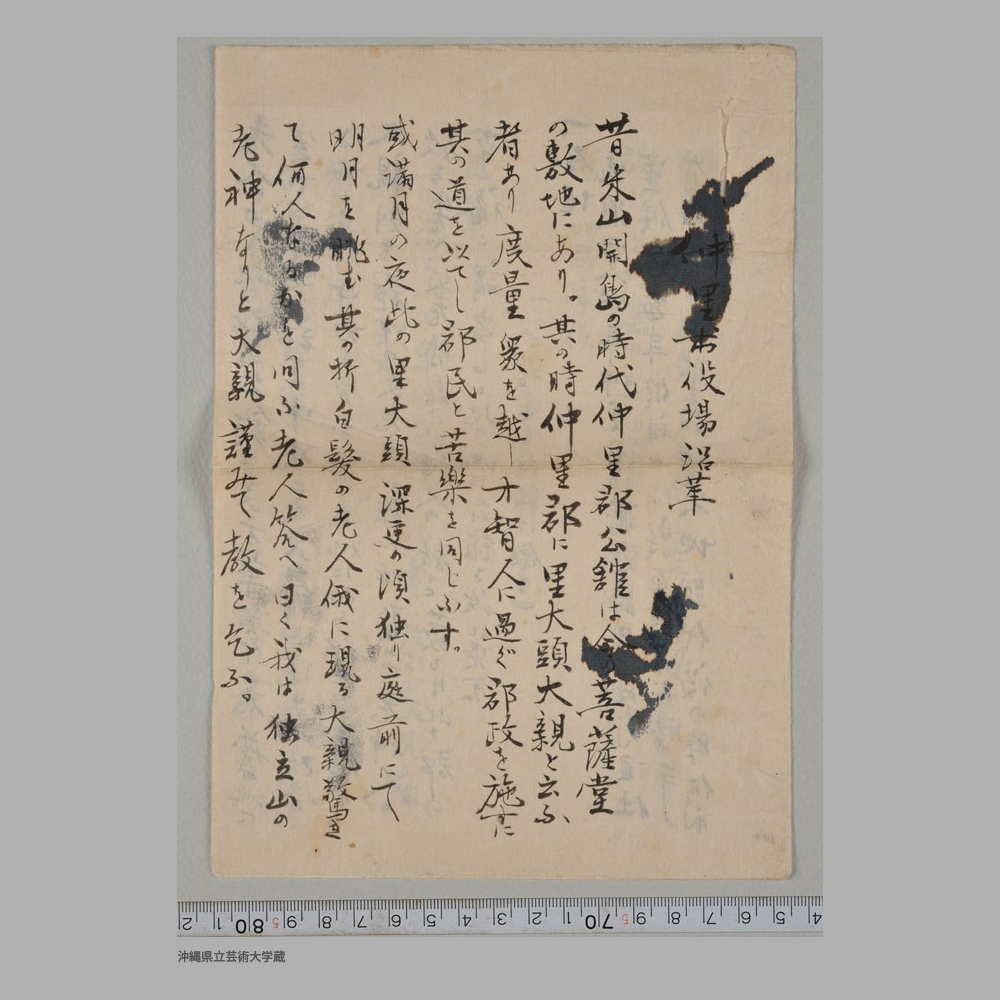 仲里村役場沿革
昔朱山開島の時代仲里郡公舘は今の菩薩堂
の敷地にあり。其の時仲里郡に里大頭大親と云ふ
者あり度量衆を越し才智人に過ぐ郡政を施すに
其の道を以てし郡民と苦樂を同じふす。
或満月の夜此の里大頭深更の頃独り庭前にて
明月を眺む其の折白髮の老人俄に現る大親驚き
て何人なるかを問ふ老人答へ曰く我は独立山の
老神なりと大親謹みて教を乞ふ。
沖縄県立芸術大学蔵